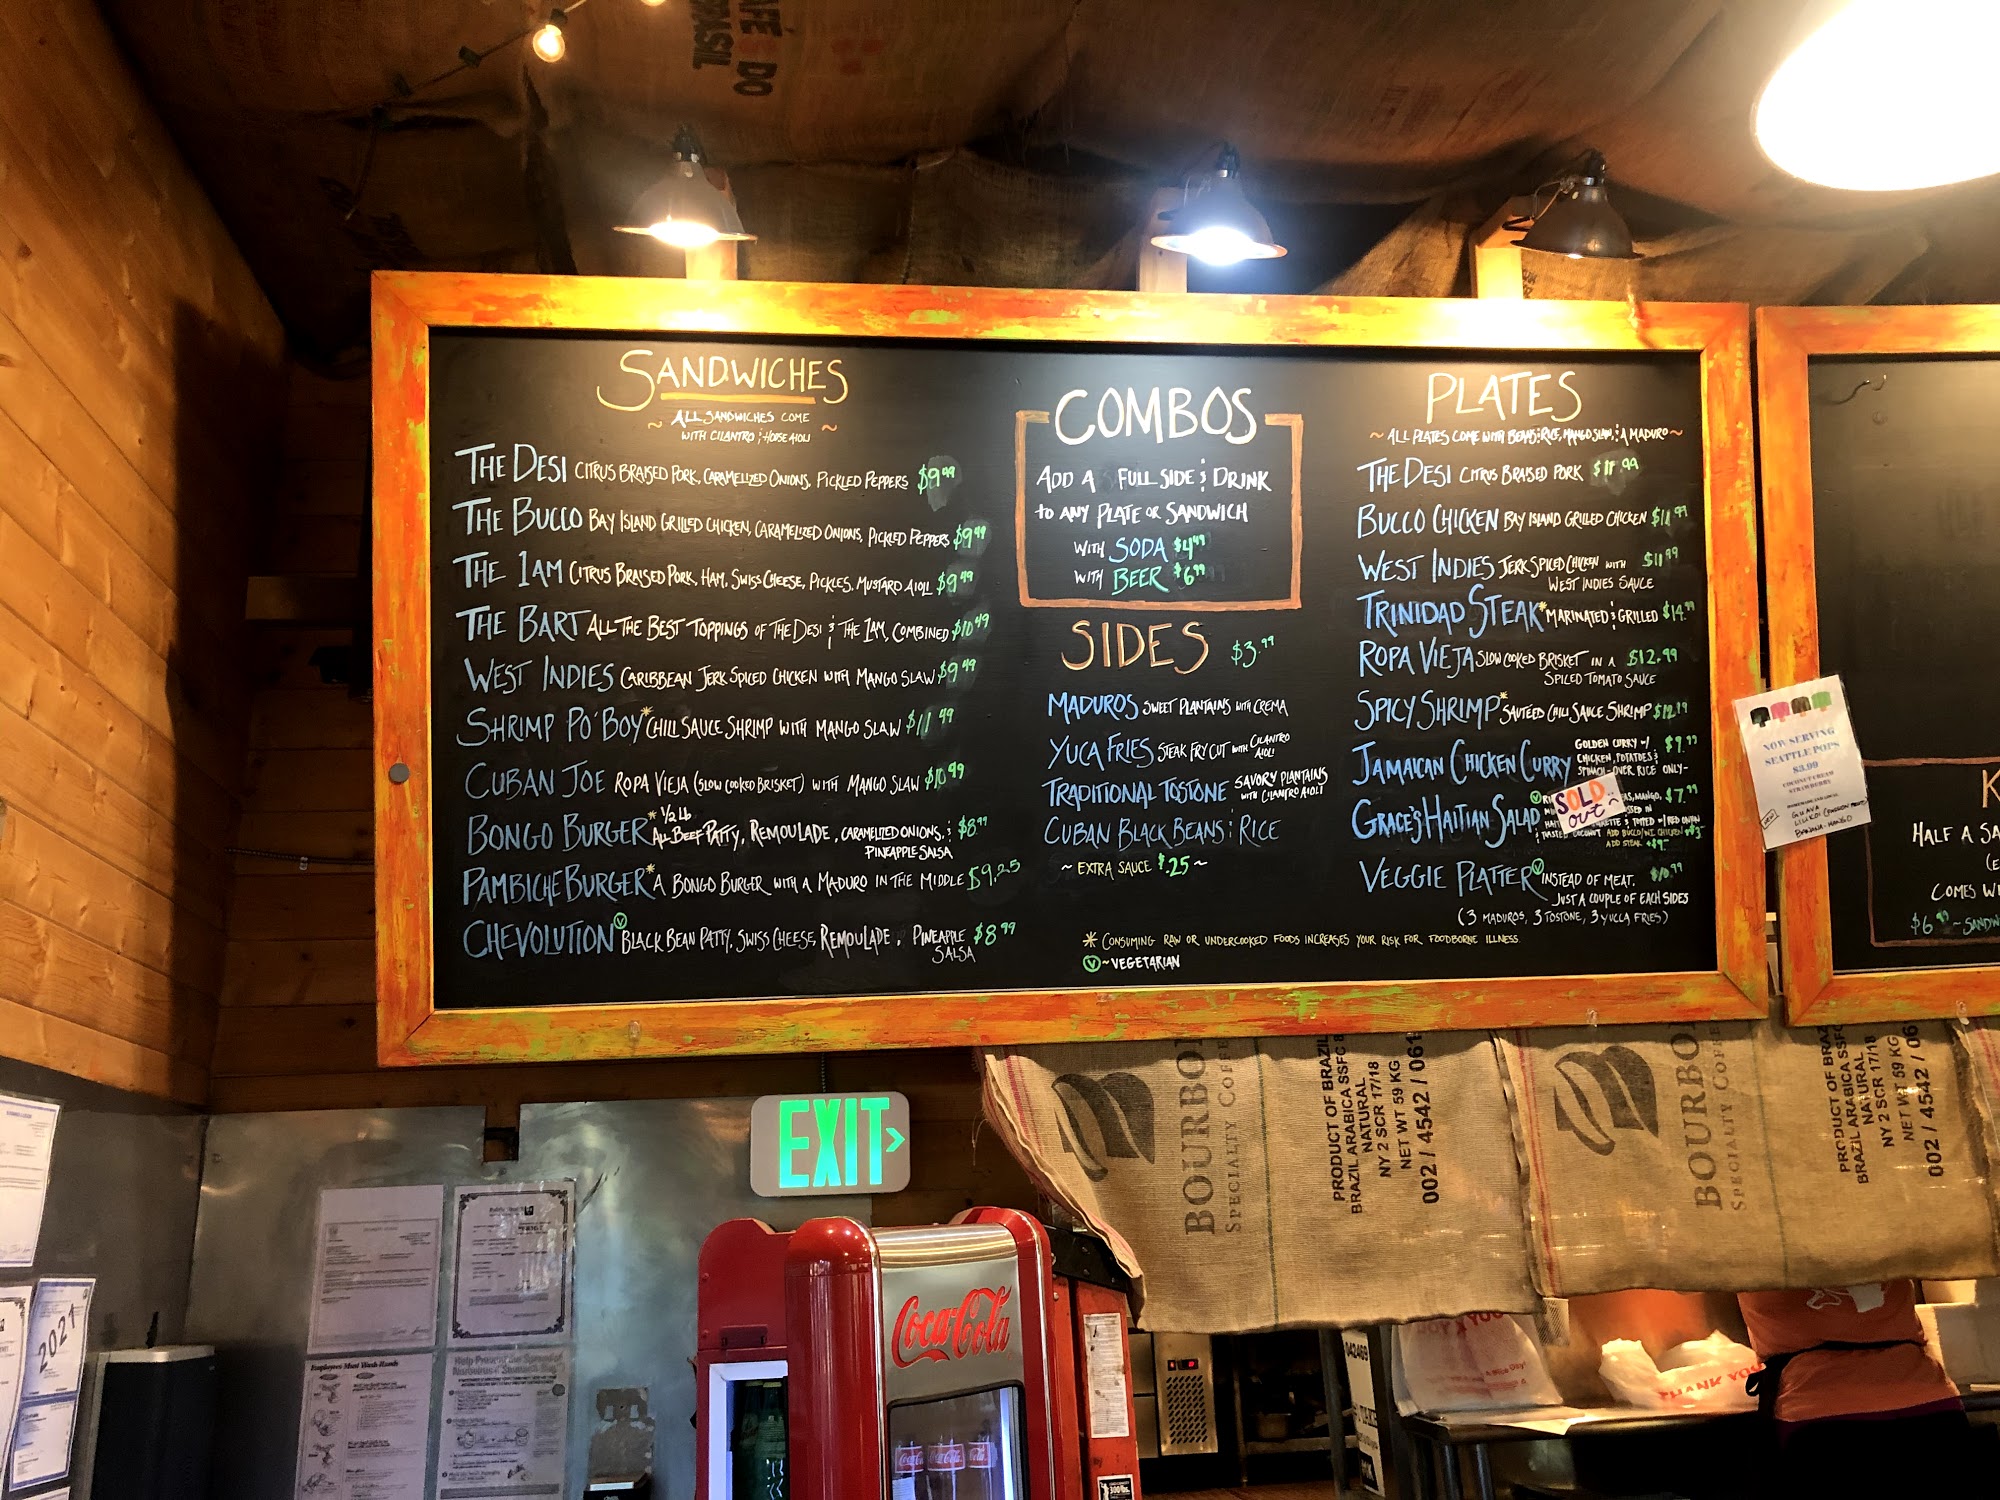 SANDWICHES
~ ALL SANDWICHES COME ~
WITH CILANTRO & HOUSE AIOLI
THE DESI CITRUS BRAISED PORK, CARAMELIZED ONIONS, PICKLED PEPPERS $9.99
THE BUCCO BAY ISLAND GRILLED CHICKEN, CARAMELIZED ONIONS, PICKLED PEPPERS $9.49
THE IAM CITRUS BRAISED PORK, HAM, SWISS CHEESE, PICKLES, MUSTARD AIOLI $9.49
THE BART ALL THE BEST TOPPINGS OF THE DESI & THE IAM, COMBINED $10.49
WEST INDIES CARIBBEAN JERK SPICED CHICKEN WITH MANGO SLAW $9.49
SHRIMP PO'BOY* CHILI SAUCE SHRIMP WITH MANGO SLAW $11.49
CUBAN JOE ROPA VIEJA (SLOW COOKED BRISKET) WITH MANGO SLAW $10.99
BONGO BURGER* 1/2 LB ALL BEEF PATTY, REMOULADE, CARAMELIZED ONIONS, & $8.99
PINEAPPLE SALSA
PAMBICHE BURGER* A BONGO BURGER WITH A MADURO IN THE MIDDLE $9.25
CHEVOLUTION Ⓥ BLACK BEAN PATTY, SWISS CHEESE, REMOULADE, PINEAPPLE $8.99
SALSA
COMBOS
ADD A FULL SIDE & DRINK
TO ANY PLATE OR SANDWICH
WITH SODA $4.99
WITH BEER $6.99
SIDES $3.99
MADUROS SWEET PLANTAINS WITH CREMA
YUCA FRIES STEAK FRY CUT WITH CILANTRO
AIOLI
TRADITIONAL TOSTONE SAVORY PLANTAINS
WITH CILANTRO AIOLI
CUBAN BLACK BEANS & RICE
~ EXTRA SAUCE $.25 ~
PLATES
~ ALL PLATES COME WITH BEANS & RICE, MANGO SLAW, & A MADURO ~
THE DESI CITRUS BRAISED PORK $11.99
BUCCO CHICKEN BAY ISLAND GRILLED CHICKEN $11.99
WEST INDIES JERK SPICED CHICKEN WITH $11.99
WEST INDIES SAUCE
TRINIDAD STEAK* MARINATED & GRILLED $14.99
ROPA VIEJA SLOW COOKED BRISKET IN A $12.99
SPICED TOMATO SAUCE
SPICY SHRIMP* SAUTEED CHILI SAUCE SHRIMP
JAMAICAN CHICKEN CURRY GOLDEN CURRY W/ $9.99
CHICKEN, POTATOES &
SPINACH - OVER RICE ONLY -
GRACE'S HAITIAN SALAD Ⓥ MANGO, $7.99
SOLD
out
TOASTED COCONUT ADD BUCCO/W.I. CHICKEN
ADD STEAK
VEGGIE PLATTER Ⓥ INSTEAD OF MEAT, $10.99
JUST A COUPLE OF EACH SIDES
(3 MADUROS, 3 TOSTONE, 3 YUCCA FRIES)
* CONSUMING RAW OR UNDERCOOKED FOODS INCREASES YOUR RISK FOR FOODBORNE ILLNESS.
Ⓥ ~ VEGETARIAN
NOW SERVING
SEATTLE POPS
$3.99
COCONUT CREAM
STRAWBERRY
GUAVA
BANANA-MANGO
K
HALF A SA
(E
COMES WI
$6.99 ~ SANDW
EXIT
Coca-Cola
BOURBO
SPECIALTY COFFE
PRODUCT OF BRAZIL
BRAZIL ARABICA SSFC 8
NATURAL
NY 2 SCR 17/18
NET WT 59 KG
002 / 4542 / 061
BOURBO
SPECIALTY COFFE
PRODUCT OF BRAZ
BRAZIL ARABICA SSFC
NATURAL
NY 2 SCR 17/18
NET WT 59 KG
002 / 4542 / 06
2021
Employees Must Wash Hands
THANK YOU
042469